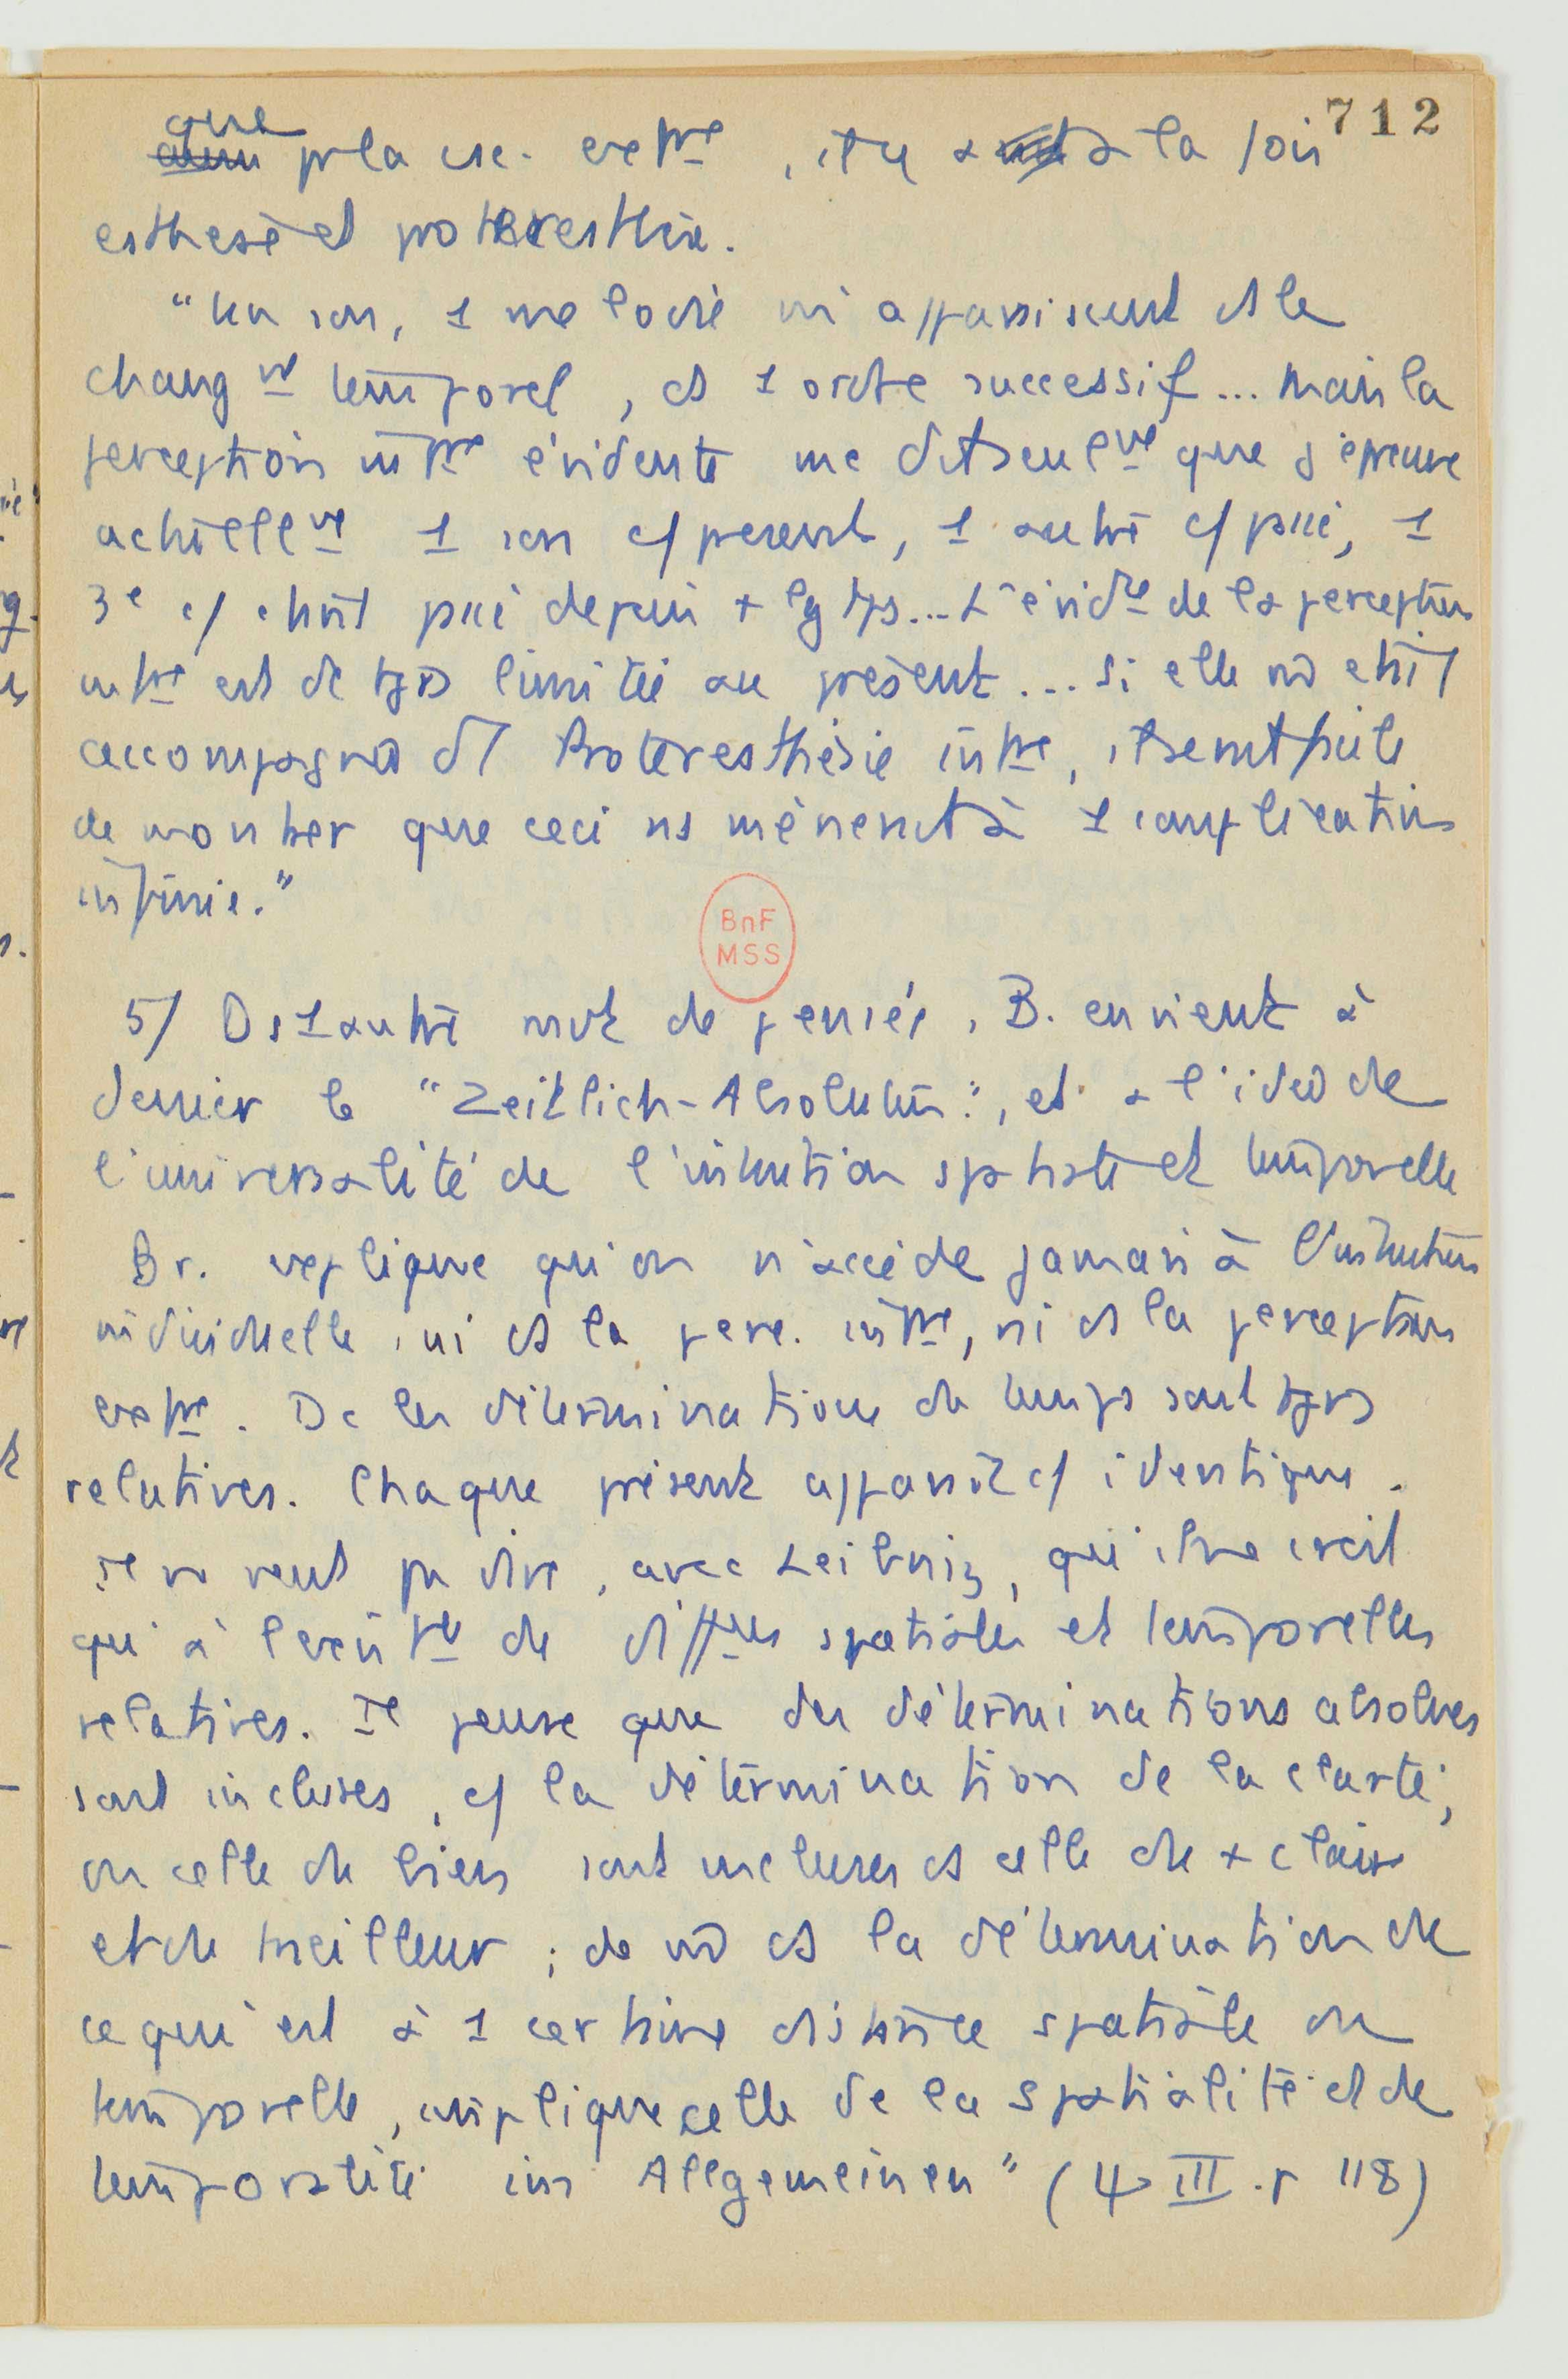 712
que
p la csc. ext^re, il y a à la fois
esthesie et proteresthésie.
"Un son, 1 melodie m'apparaissent ds le
chang^nt temporel, ds 1 ordre successif... Mais la
perception int^ne évidente me dit seul^nt que j'éprouve
actuell^nt 1 son c/ présent, 1 autre c/ passé, 1
3^e c/ étant passé depuis + lg tps... L'évid^ce de la perception
int^ne est dc tjrs limitée au présent... Si elle nô était
accompagnée d'1 Proteresthésie int^ne, il serait facile
de montrer que ceci ns mènerait à 1 complication
infinie."
BnF
MSS
5/ Ds 1 autre mvt de pensée, B. en vient à
denier le "Zeitlich-Absolutum", et à l'idée de
l'universalité de l'intuition spatiale et temporelle
Br. replique qu'on n'accède jamais à l'intuition
individuelle, ni ds la perc. int^ne, ni ds la perception
ext^ne. Dc les déterminations de temps sont tjrs
relatives. Chaque présent apparaît c/ identique.
Il ne veut pas dire, avec Leibniz, qu'il ne croit
qu'à l'exist^ce de diff^ces spatiales et temporelles
relatives. Il pense que des déterminations absolues
sont incluses, c/ la détermination de la clarté,
ou celle de bien sont incluses ds celle de + clair
et de meilleur ; de mô ds la détermination de
ce qui est à 1 certaine distance spatiale ou
temporelle, implique celle de la spatialité et de
temporalité im Allgemeinen" (Ψ III. p 118)